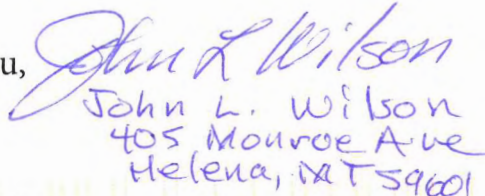 u, John L Wilson
John L. Wilson
405 Monroe Ave
Helena, MT 59601